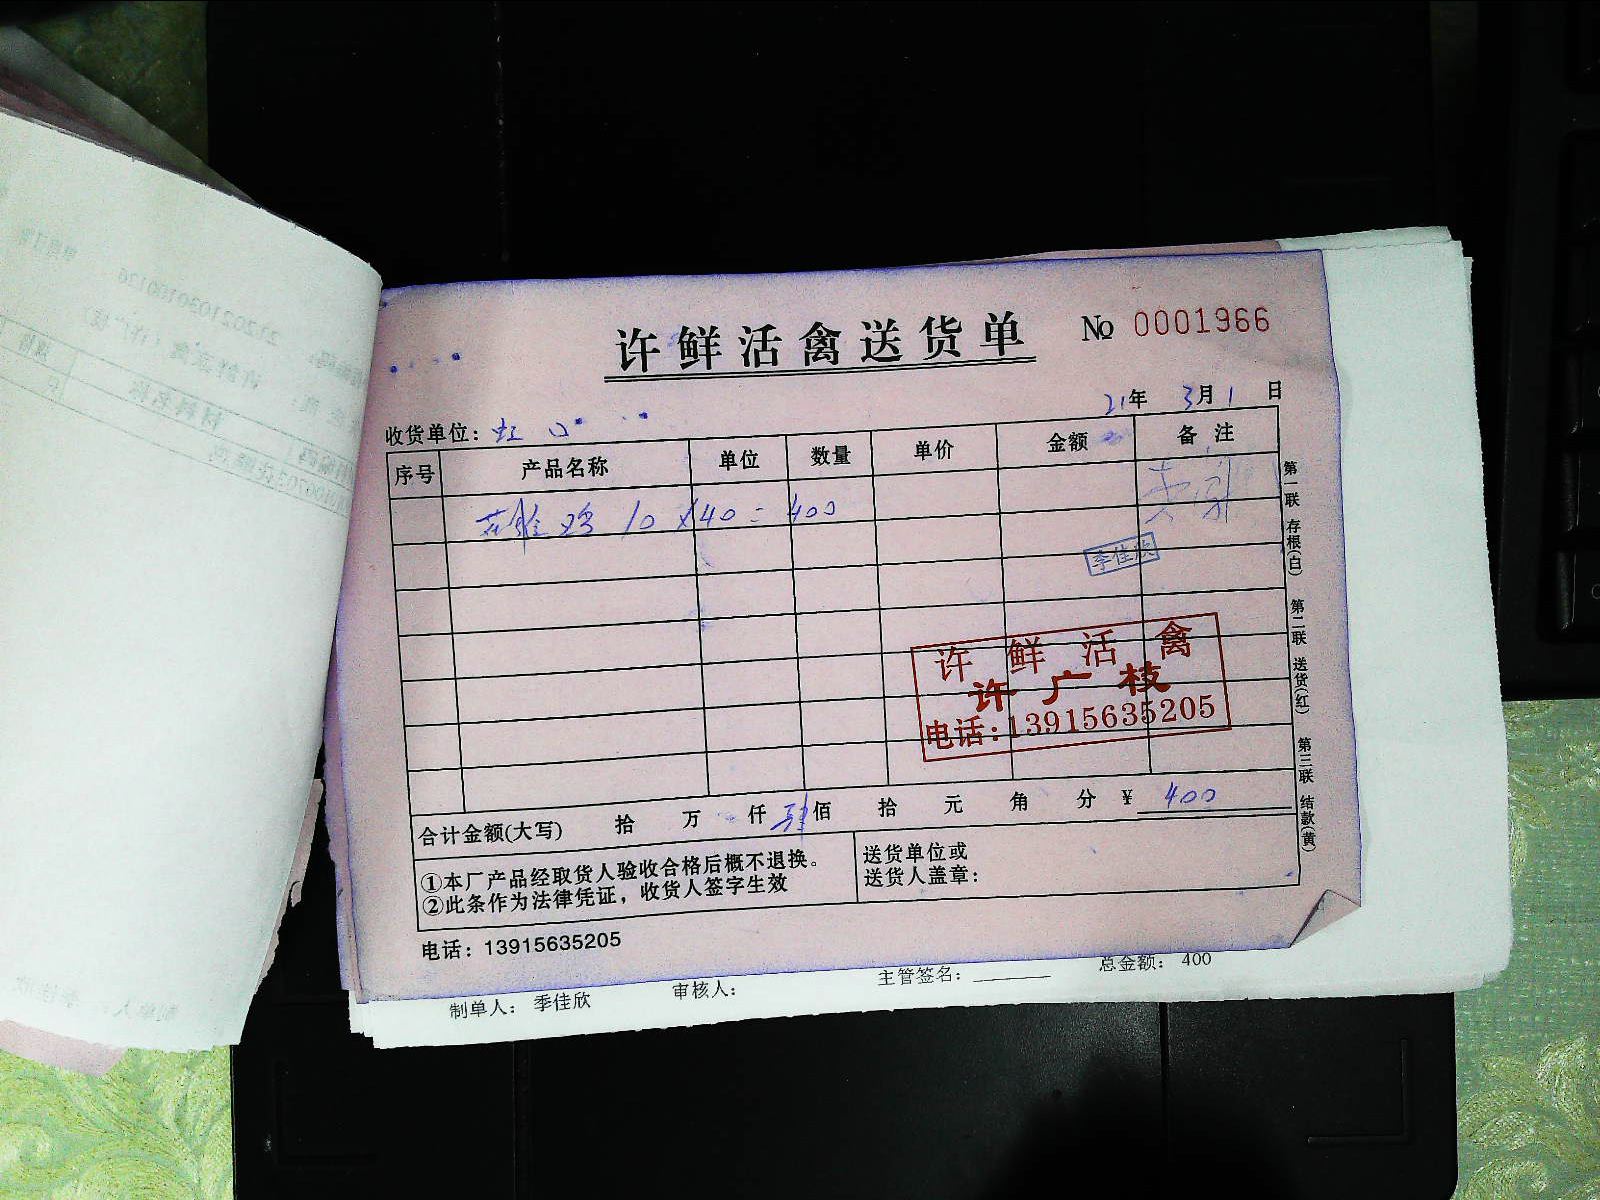 许鲜活禽送货单 No 0001966
21年 3月 1 日
收货单位：虹口
序号 产品名称 单位 数量 单价 金额 备注
草雞 鸡 10 × 40 = 400
李佳欣
许鲜活禽
许广枝
电话：13915635205
合计金额(大写) 拾 万 仟 肆佰 拾 元 角 分 ¥ 400
①本厂产品经取货人验收合格后概不退换。
②此条作为法律凭证，收货人签字生效
送货单位或
送货人盖章：
电话：13915635205
第一联 存根(白) 第二联 送货(红) 第三联 结款(黄)
制单人： 季佳欣 审核人： 主管签名： 总金额： 400